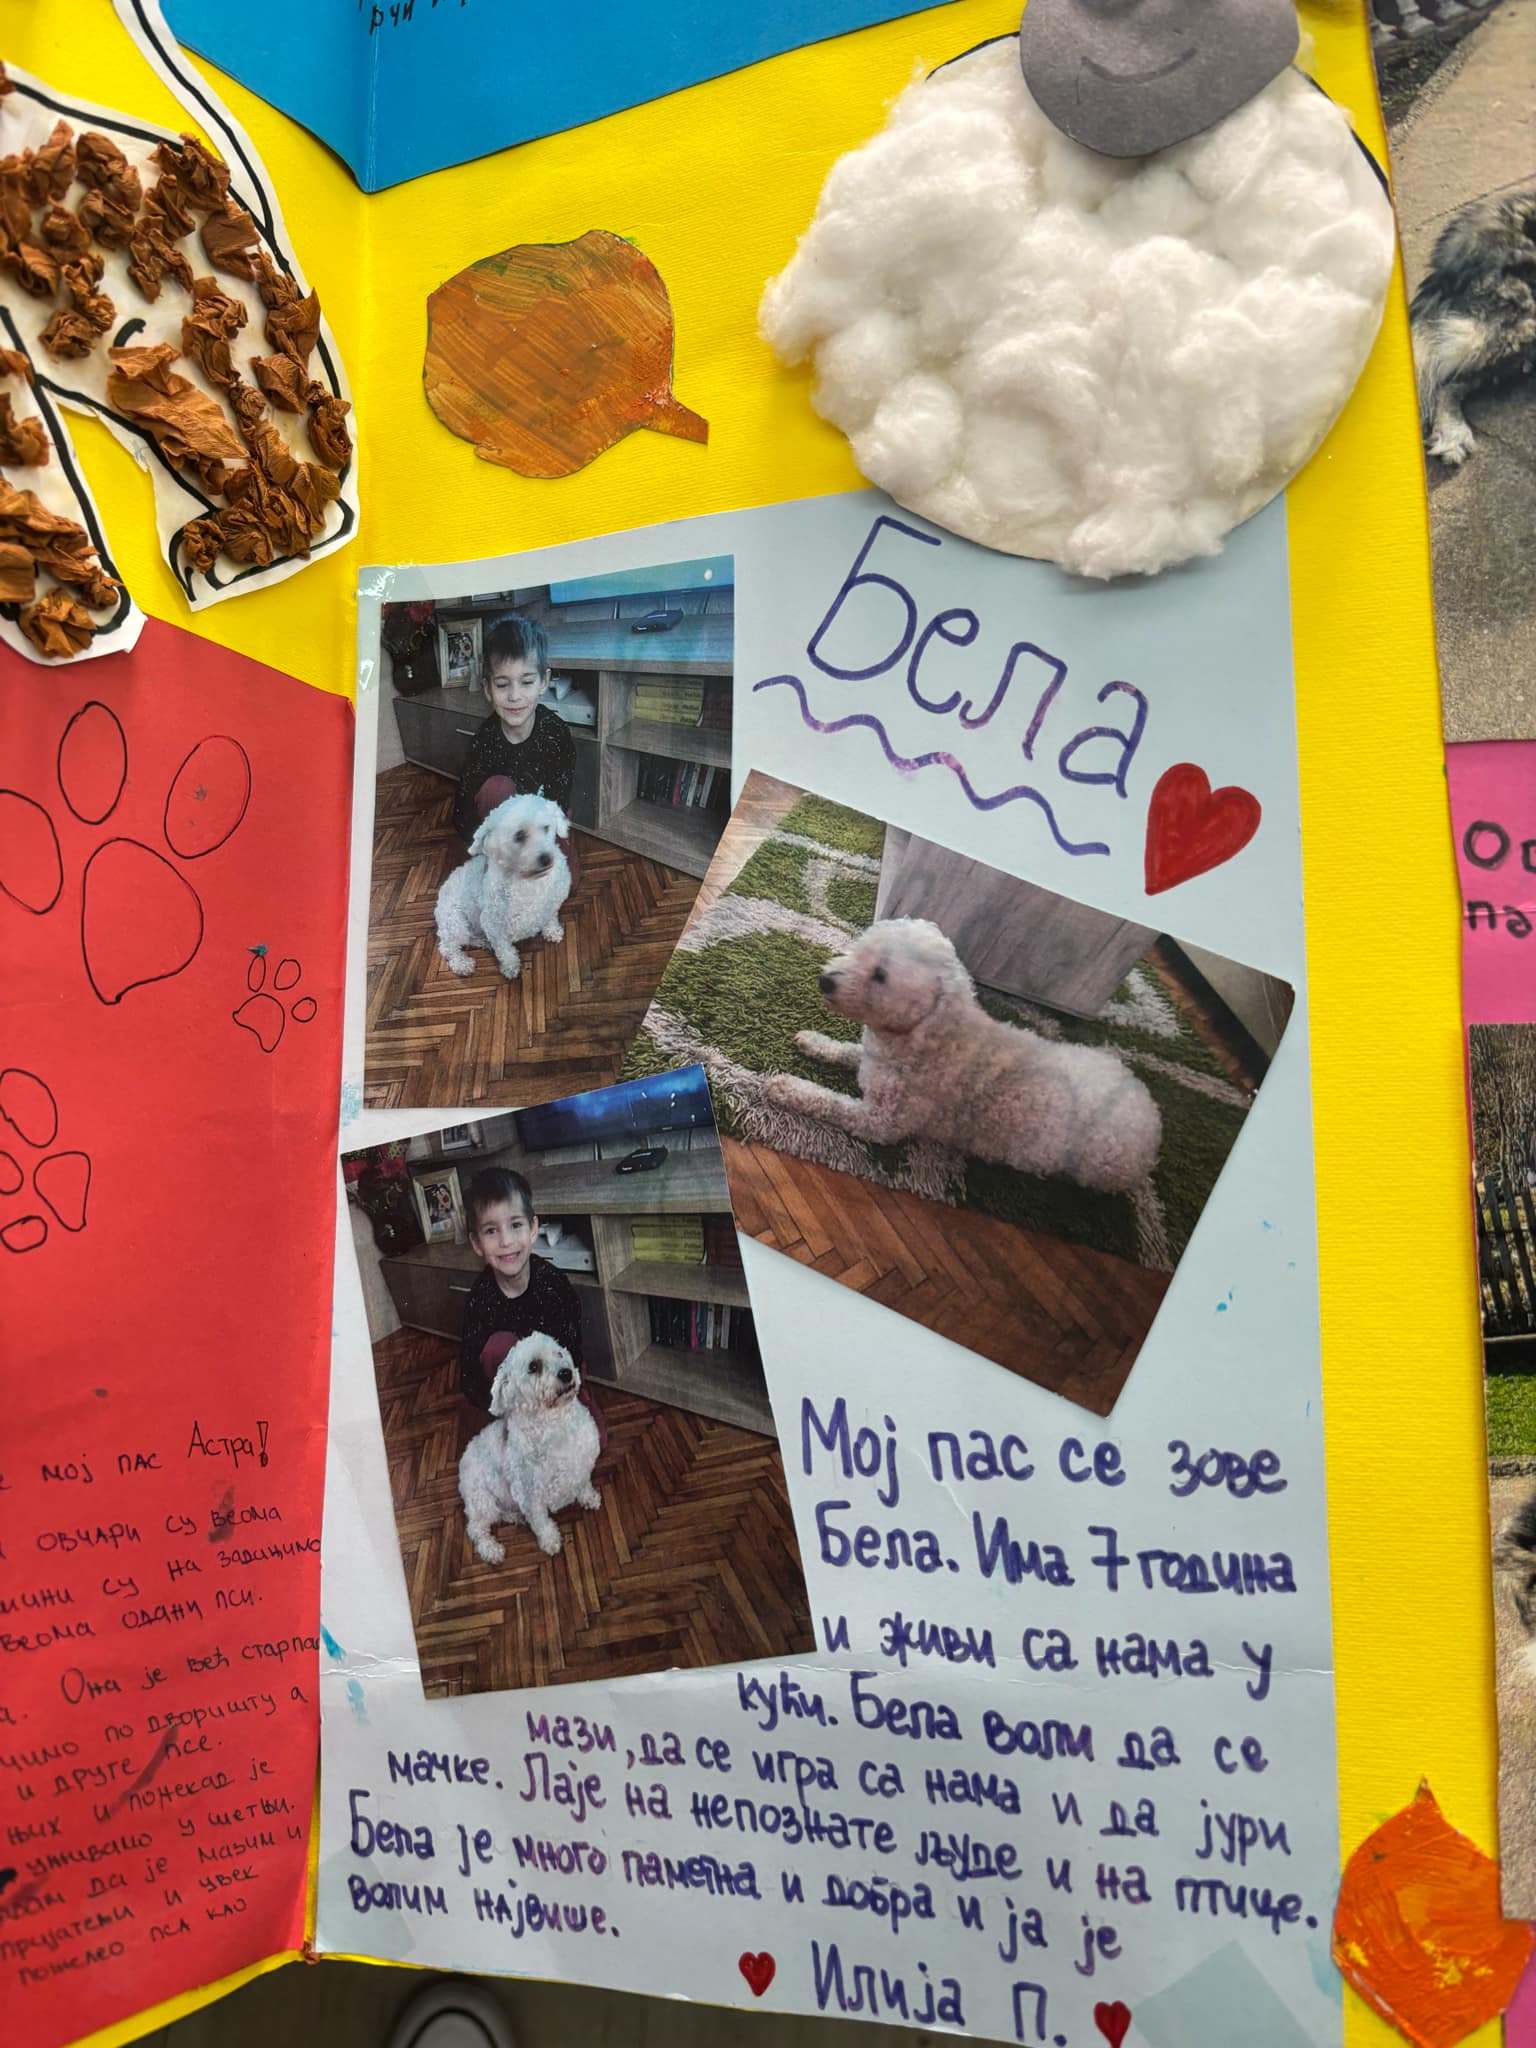 Бела
Мој пас се зове
Бела. Има 7 година
и живи са нама у
кући. Бела воли да се
мази, да се игра са нама и да јури
мачке. Лаје на непознате људе и на птице.
Бела је много паметна и добра и ја је
волим највише.
Илија П.
мој пас Астра!
овчари су веома
су на
веома одани пси.
Она је већ
по дворишту а
и друге псе.
њих и понекад је
уживамо у шетњи.
да је мазим и
и увек
пса као